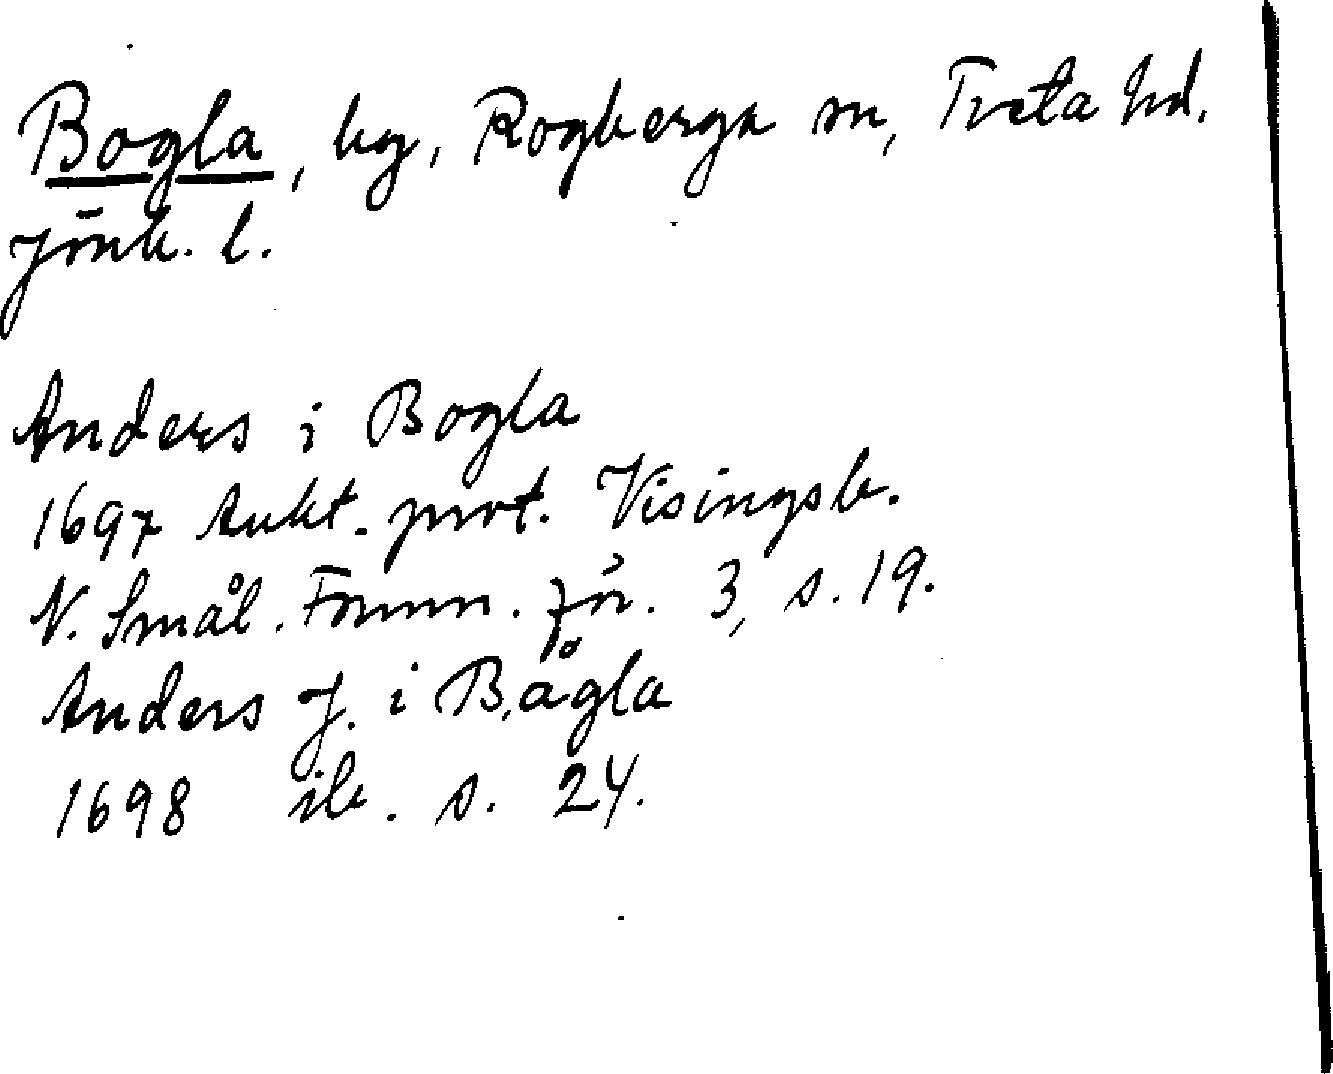 Bogla, by, Rogberga sn, Tveta hd.
Jönk. l.
Anders i Bogla
1697 Aukt. prot. Visingsb.
N. Smål. Fornm. för. 3, s. 19.
Anders J. i Bågla
1698 ib. s. 24.